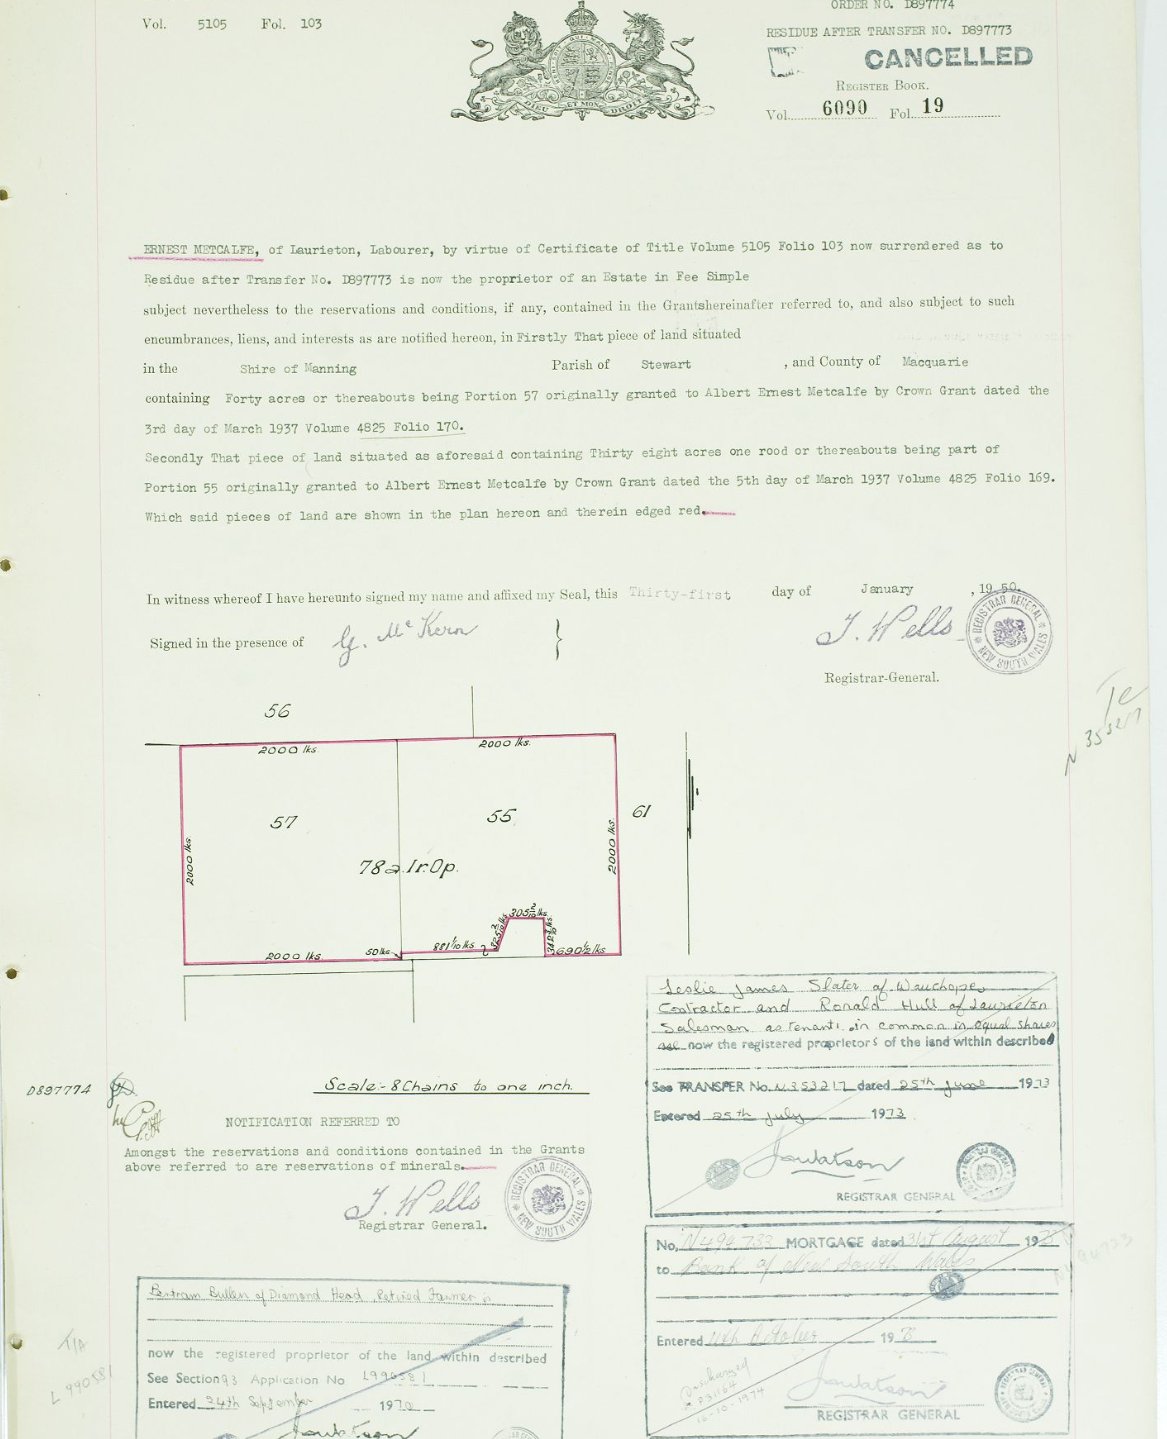 ORDER NO. D897774
Vol. 5105 Fol. 103
RESIDUE AFTER TRANSFER NO. D897773
CANCELLED
REGISTER BOOK.
Vol. 6090 Fol. 19
DIEU ET MON DROIT
ERNEST METCALFE, of Laurieton, Labourer, by virtue of Certificate of Title Volume 5105 Folio 103 now surrendered as to
Residue after Transfer No. D897773 is now the proprietor of an Estate in Fee Simple
subject nevertheless to the reservations and conditions, if any, contained in the Grantshereinafter referred to, and also subject to such
encumbrances, liens, and interests as are notified hereon, in Firstly That piece of land situated
in the Shire of Manning Parish of Stewart , and County of Macquarie
containing Forty acres or thereabouts being Portion 57 originally granted to Albert Ernest Metcalfe by Crown Grant dated the
3rd day of March 1937 Volume 4825 Folio 170.
Secondly That piece of land situated as aforesaid containing Thirty eight acres one rood or thereabouts being part of
Portion 55 originally granted to Albert Ernest Metcalfe by Crown Grant dated the 5th day of March 1937 Volume 4825 Folio 169.
Which said pieces of land are shown in the plan hereon and therein edged red.
In witness whereof I have hereunto signed my name and affixed my Seal, this Thirty-first day of January , 1950.
Signed in the presence of G. McKern }
J. Wells
REGISTRAR GENERAL NEW SOUTH WALES
Registrar-General.
56
2000 lks. 2000 lks.
57 55 61
2000 lks. 2000 lks.
78a.1r.0p.
2000 lks. 50 lks. 881 1/10 lks. 690 1/2 lks.
Leslie James Slater of Wauchope,
Contractor and Ronald Hull of Laurieton
Salesman as tenants in common in equal shares
now the registered proprietors of the land within described
See TRANSFER No. N353217 dated 25th June 1973
Entered 25th July 1973
REGISTRAR GENERAL
D897774
Scale:- 8 Chains to one inch.
NOTIFICATION REFERRED TO
Amongst the reservations and conditions contained in the Grants
above referred to are reservations of minerals.
J. Wells
Registrar General.
REGISTRAR GENERAL NEW SOUTH WALES
No. N494733 MORTGAGE dated 31st August 197
to Bank of New South Wales
Entered 197
Discharged
16-10-1974
REGISTRAR GENERAL
Bertram Bullen of Diamond Head, Retired Farmer is
now the registered proprietor of the land within described
See Section 93 Application No L990581
Entered 24th September 1970
L990581
N 353217